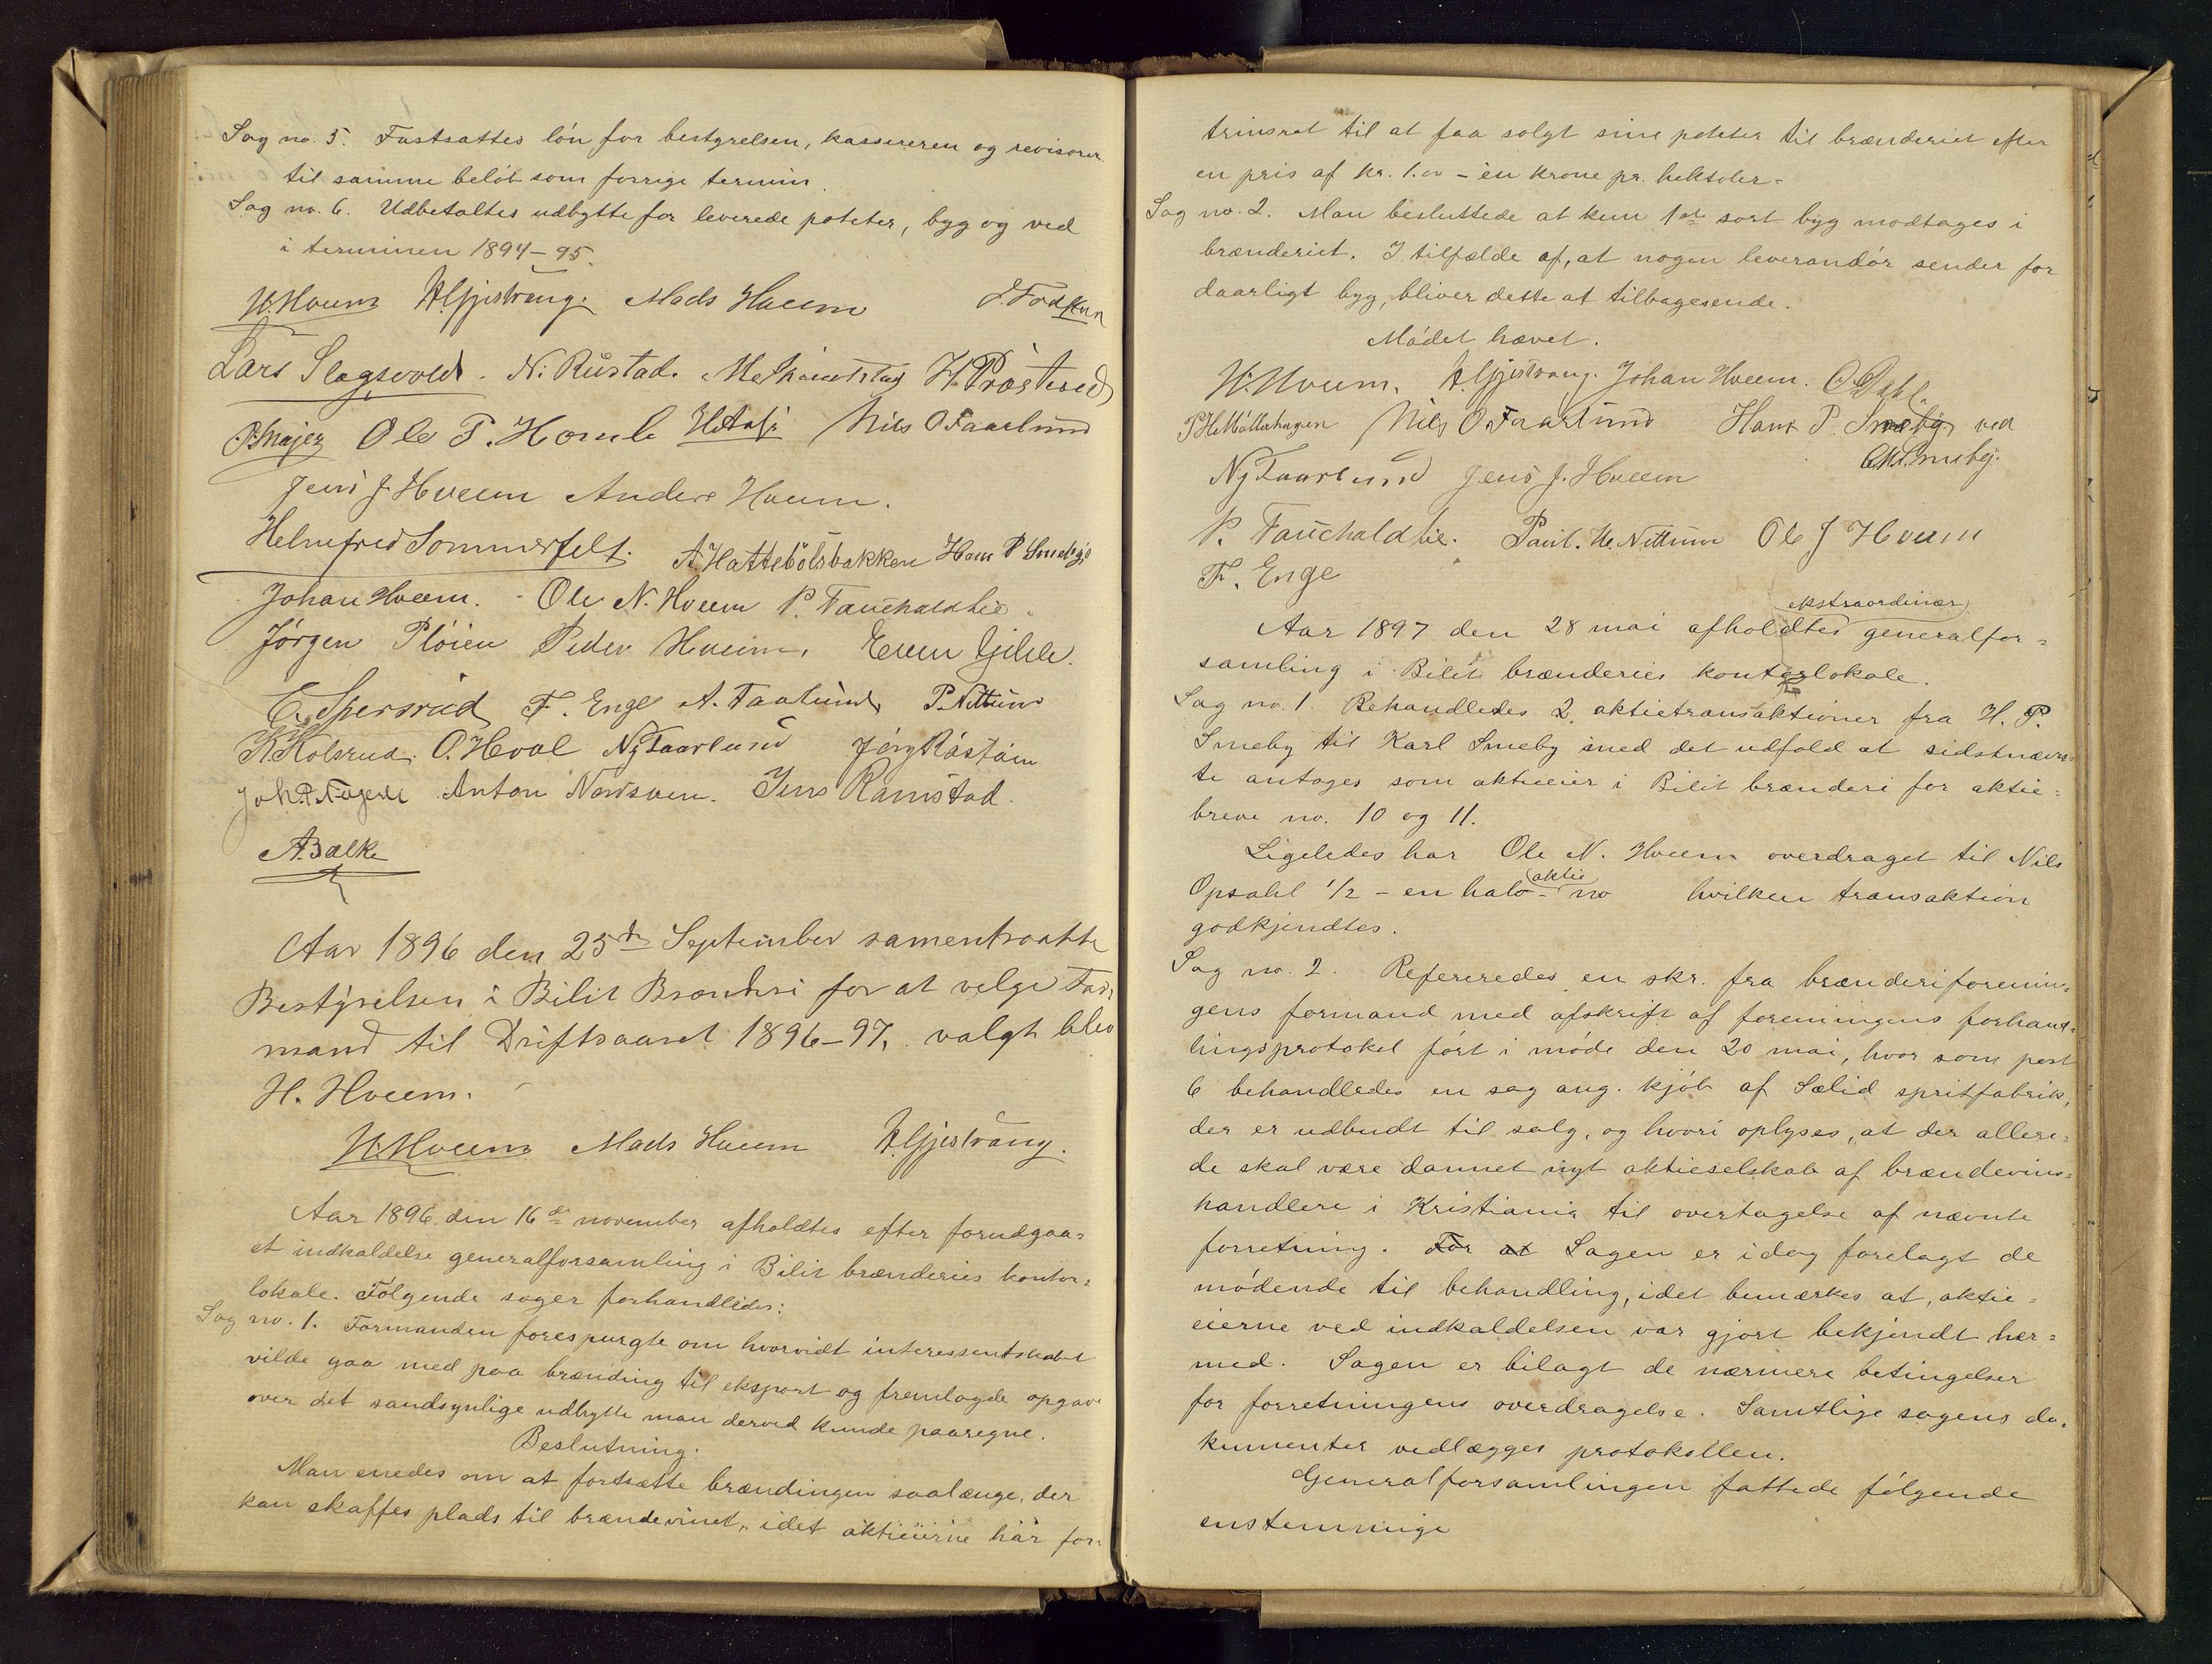 Sag no. 5. Fastsattes løn for bestyrelsen, kassereren og revisorer
til samme beløb som forrige termin.
Sag no. 6. Udbetaltes udbytte for leverede poteter, byg og ved
i terminen 1894–95.
H. Hveem H. Gjestvang. Mads Hveem
Lars Slagsvold. N. Rustad. H. Præstesed
P. Majer Ole P. Homle Nils O Faarlund
Jens J. Hveem Anders Hveem.
Helmfred Sommerfelt. A. Hattebölsbakken Hans P Smeby
Johan Hveem. Ole N. Hveem P. Fauchaldlie.
Jørgen Pløien Peder Hveem. Even Gjile.
E. Spersrud F. Enge A. Faalund P. Nettum
K. Kolsrud. O. Hoval N. Faarlund
Anton Jens Ramstad.
A. Balke
Aar 1896 den 25de September samentraatte
Bestyrelsen i Bilit Brænderi for at velge For-
mand til Driftsaaret 1896–97. valgt blev
H. Hveem.
H. Hveem Mads Hveem H. Gjestvang.
Aar 1896 den 16de november afholdtes efter forudgaa=
et indkaldelse generalforsamling i Bilit brænderies kontor=
lokale. Følgende sager forhandledes:
Sag no. 1. Formanden forespurgte om hvorvidt interessentskabet
vilde gaa med paa brænding til eksport og fremlagde opgave
over det sandsynlige udbytte man derved kunde paaregne.
Beslutning:
Man enedes om at fortsætte brændingen saalænge, der
kan skaffes plads til brændevinet, idet aktieeierne har for=
trinsret til at faa solgt sine poteter til brænderiet efter
en pris af kr. 1.00 – èn krone pr. hektoler=
Sag no. 2. Man besluttede at kun 1ste sort byg modtages i
brænderiet. I tilfælde af, at nogen leverandør sender for
daarligt byg, bliver dette at tilbagesende.
Mødet hævet.
H. Hveem. H. Gjestvang. Johan Hveem. O. Dahl.
P. H. Møllerhagen Nils O. Faarlund Hans P. Smeby ved
N. Faarlund Jens J. Hveem K. Smeby.
P. Fauchaldlie. Paul. H. Nettum Ole J Hveem
F. Enge
ekstraordinær
Aar 1897 den 28 mai afholdtes generalfor=
samling i Bilit brænderies kontorlokale.
Sag no. 1. Behandledes 2. aktietransaktioner fra H. P.
Smeby til Karl Smeby med det udfald at sidstnævn=
te antages som aktieeier i Bilit brænderi for aktie=
breve no. 10 og 11.
Ligeledes har Ole N. Hveem overdraget til Nils
aktie
Opsahl 1/2 – en halv – no hvilken transaktion
godkjendtes.
Sag no. 2. Refereredes en skr. fra brænderiforenin=
gens formand med afskrift af foreningens forhand=
lingsprotokol ført i møde den 20 mai, hvor som post
6 behandledes en sag ang. kjøb af Sælid spritfabrik,
der er udbudt til salg, og hvori oplyses, at der allere=
de skal være dannet nyt aktieselskab af brændevins=
handlere i Kristiania til overtagelse af nævnte
forretning. For at Sagen er idag forelagt de
mødende til behandling, idet bemærkes at, aktie=
eierne ved indkaldelsen var gjort bekjendt her=
med. Sagen er bilagt de nærmere betingelser
for forretningens overdragelse. Samtlige sagens do=
kumenter vedlægges protokollen.
Generalforsamlingen fattede følgende
enstemmige